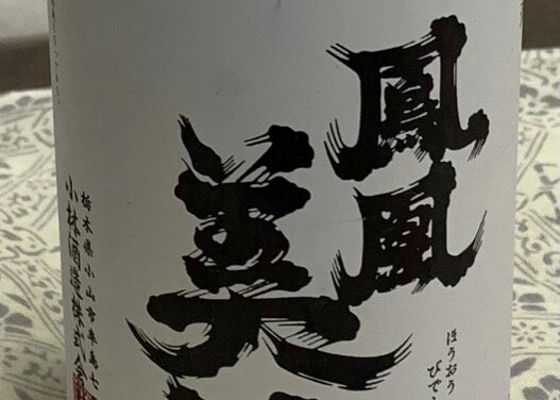 鳳凰
美
ほうおう
びでん
栃木県小山市卒島七
小林酒造株式会